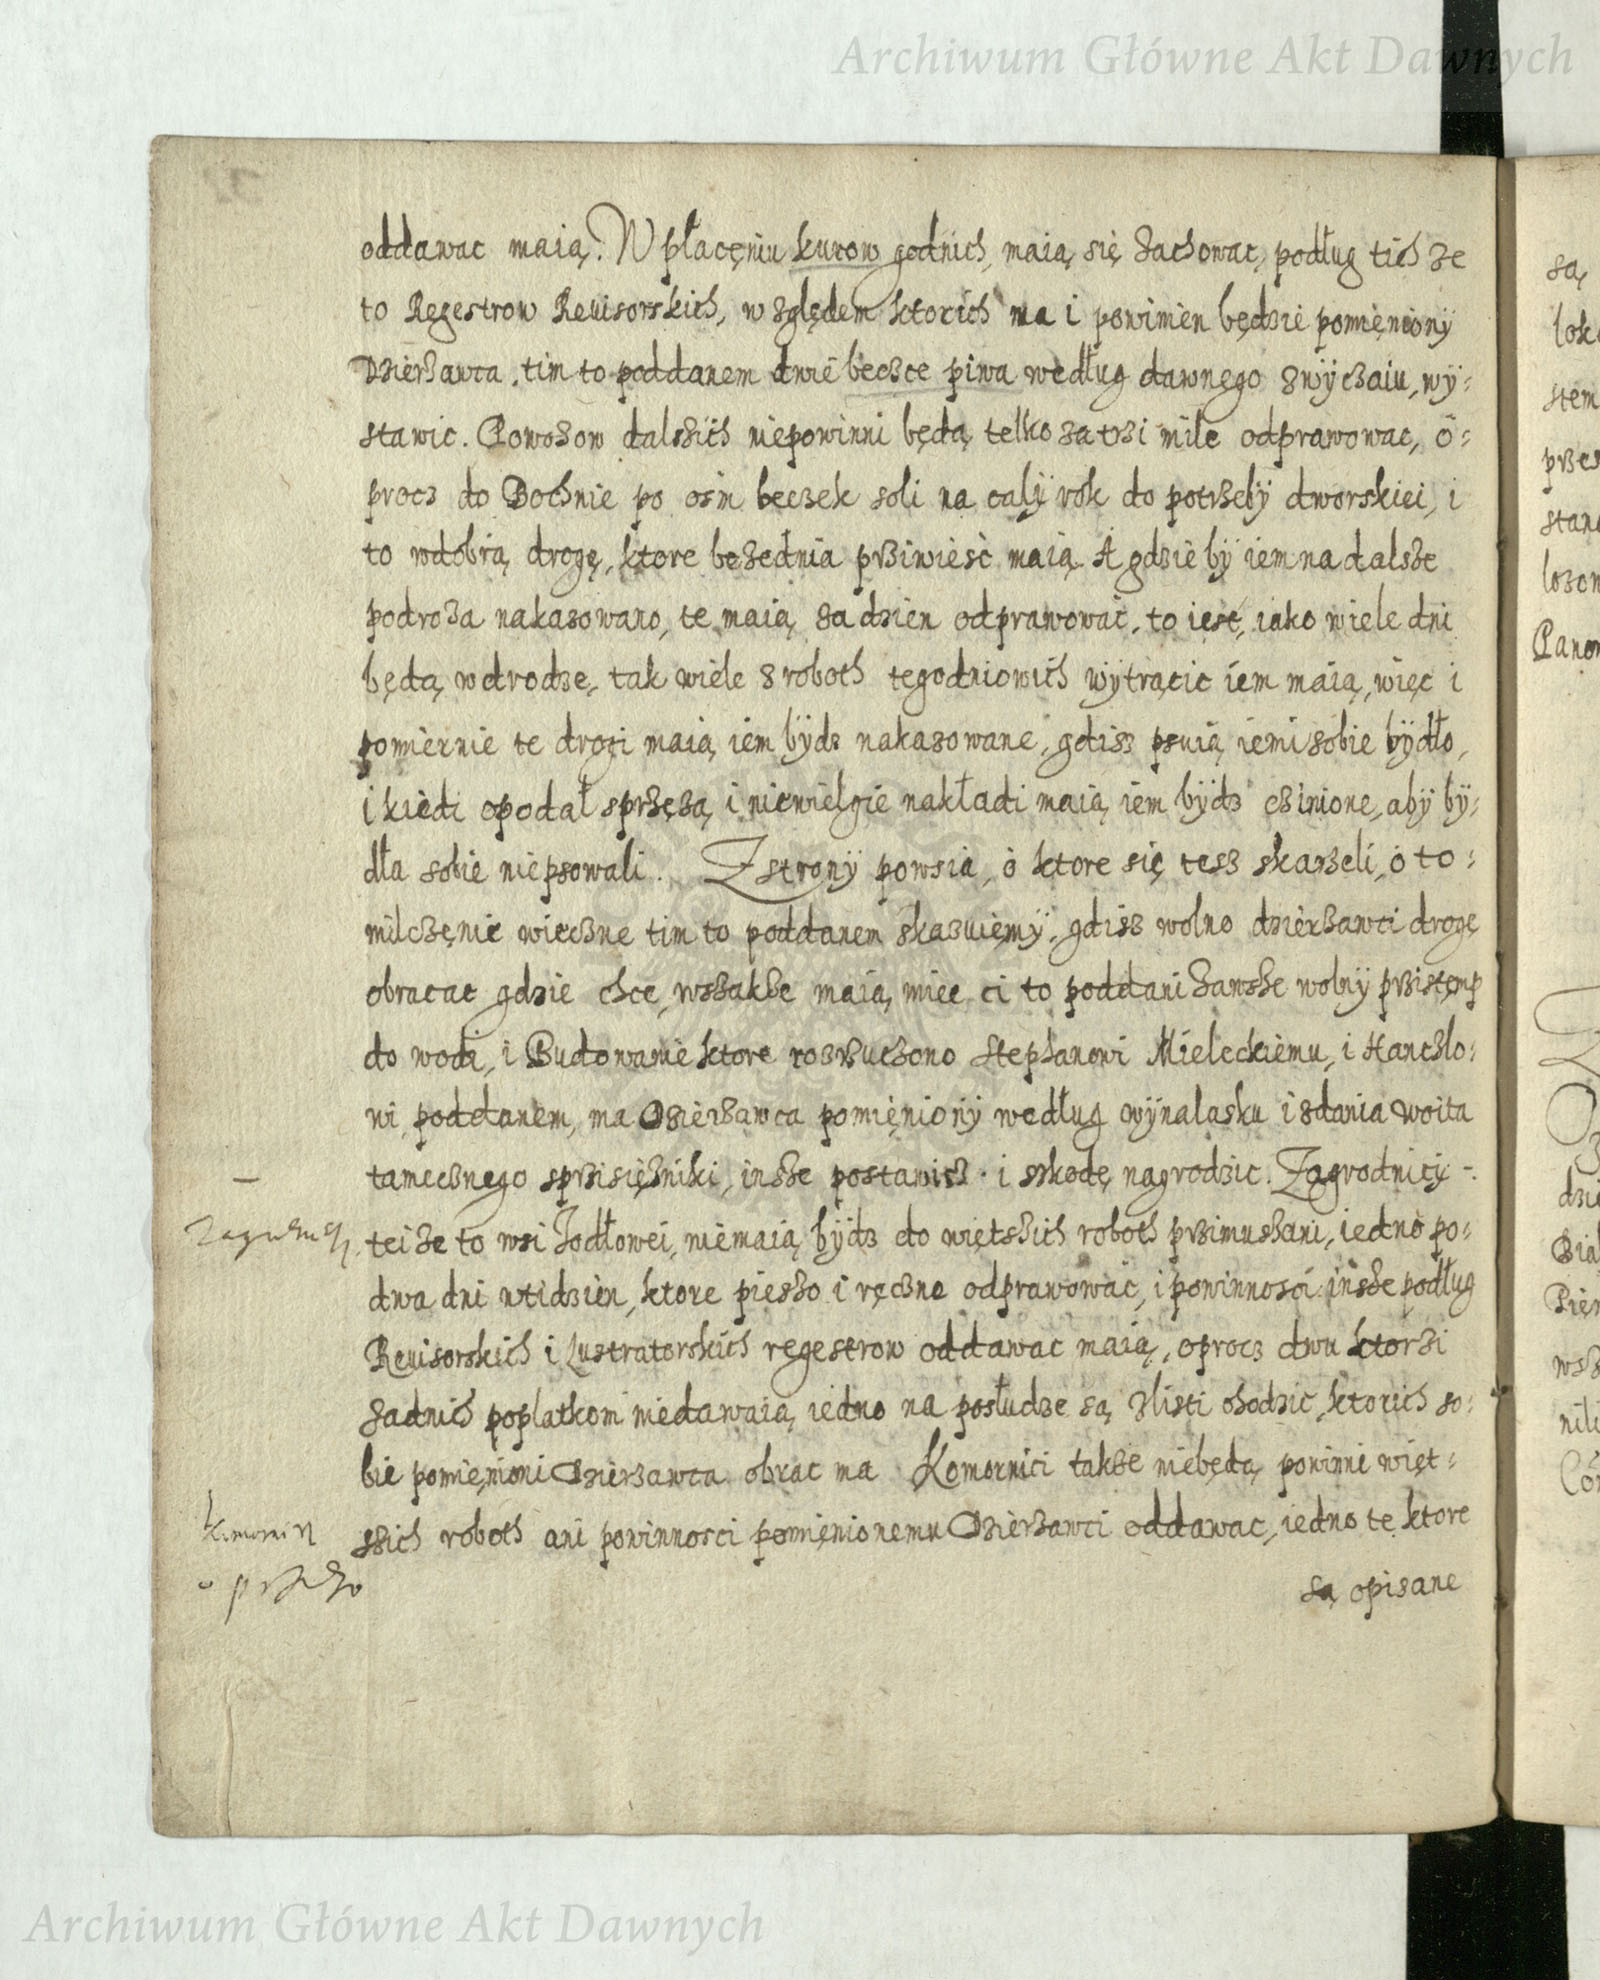 Archiwum Główne Akt Dawnych
oddawac maią. W płacęniu kurow godnich, maią się zachowac, podług tich ze
to Regestrow Reuisorskich, w zględem ktorich ma i powinien będzie pomięniony
Dzierzawca, tim to poddanem dwie beczce piwa według dawnego zwyczaiu, wÿ-
stawic. Powozow dalszich niepowinni będą telko za trzi mile odprawowac, o-
procz do Bochnie po osm beczek soli na całÿ rok do potrzebÿ dworskiei, i
to wdobrą drogę, ktore bezednia prziwiesc maią. A gdzie bÿ iem na dalsze
podroza nakazowano, te maią za dzien odprawowac, to iest, iako wiele dni
będą wdrodze, tak wiele z roboth tegodniowich wÿtrącic iem maią, więc i
pomiernie te drogi maią iem bÿdz nakazowane, gdisz psuią iemi sobie bÿdło,
i kiedi opodal sprzęzą, i niewielgie nakładi maią iem bÿdz czinione, abÿ bÿ-
dła sobie niepsowali. Z stronÿ powsia, o ktore się tesz skarzeli, o to-
milczęnie wieczne tim to poddanem skazuięmÿ, gdisz wolno dzierzawci drogę
obracac gdzie chce, wszakze maią miec ci to poddani zawsze wolnÿ przistęmp
do wodi, i Budowanie ktore rozrzuczono Stephanowi Mieleckiemu, i Hanczlo-
wi, poddanem, ma Dzierzawca pomięnionÿ według wÿnalasku i zdania woita
tamecznego sprzisięzniki, insze postawicz i szkodę nagrodzic. Zagrodnicÿ -
tei ze to wsi Jodłowei, niemaią bÿdz do więtszich roboth przimuszani, iedno po-
dwa dni wtidzien, ktore pieszo i ręczno odprawowac, i powinnosci insze podług
Reuisorskich i Lustratorskich regestrow oddawac maią, oprocz dwu ktorzi
zadnich poplatkow niedawaią, iedno na posłudze są zlisti chodzic, ktorich so-
bie pomięnioni Dzierzawca obrac ma Komornici takze niebędą powinni więt-
szich roboth ani powinnosci pomięnionemu Dzierzawci oddawac, iedno te ktore
są opisane
są
stem
Panow
Archiwum Główne Akt Dawnych